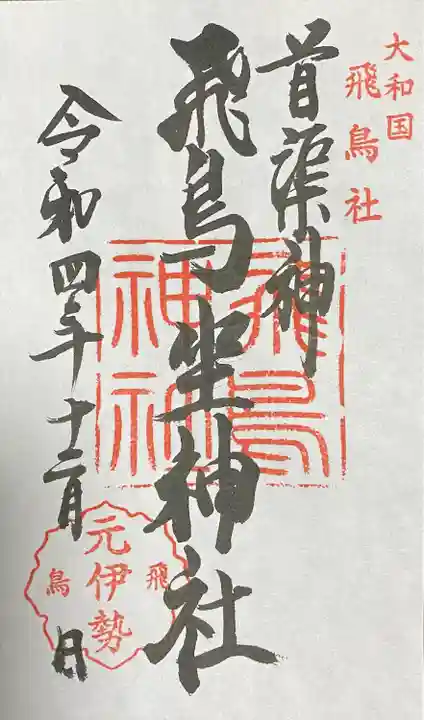 大和国
飛鳥社
首渠神
飛鳥坐神社
令和四年十二月 日
飛鳥
神社
元伊勢
飛
鳥